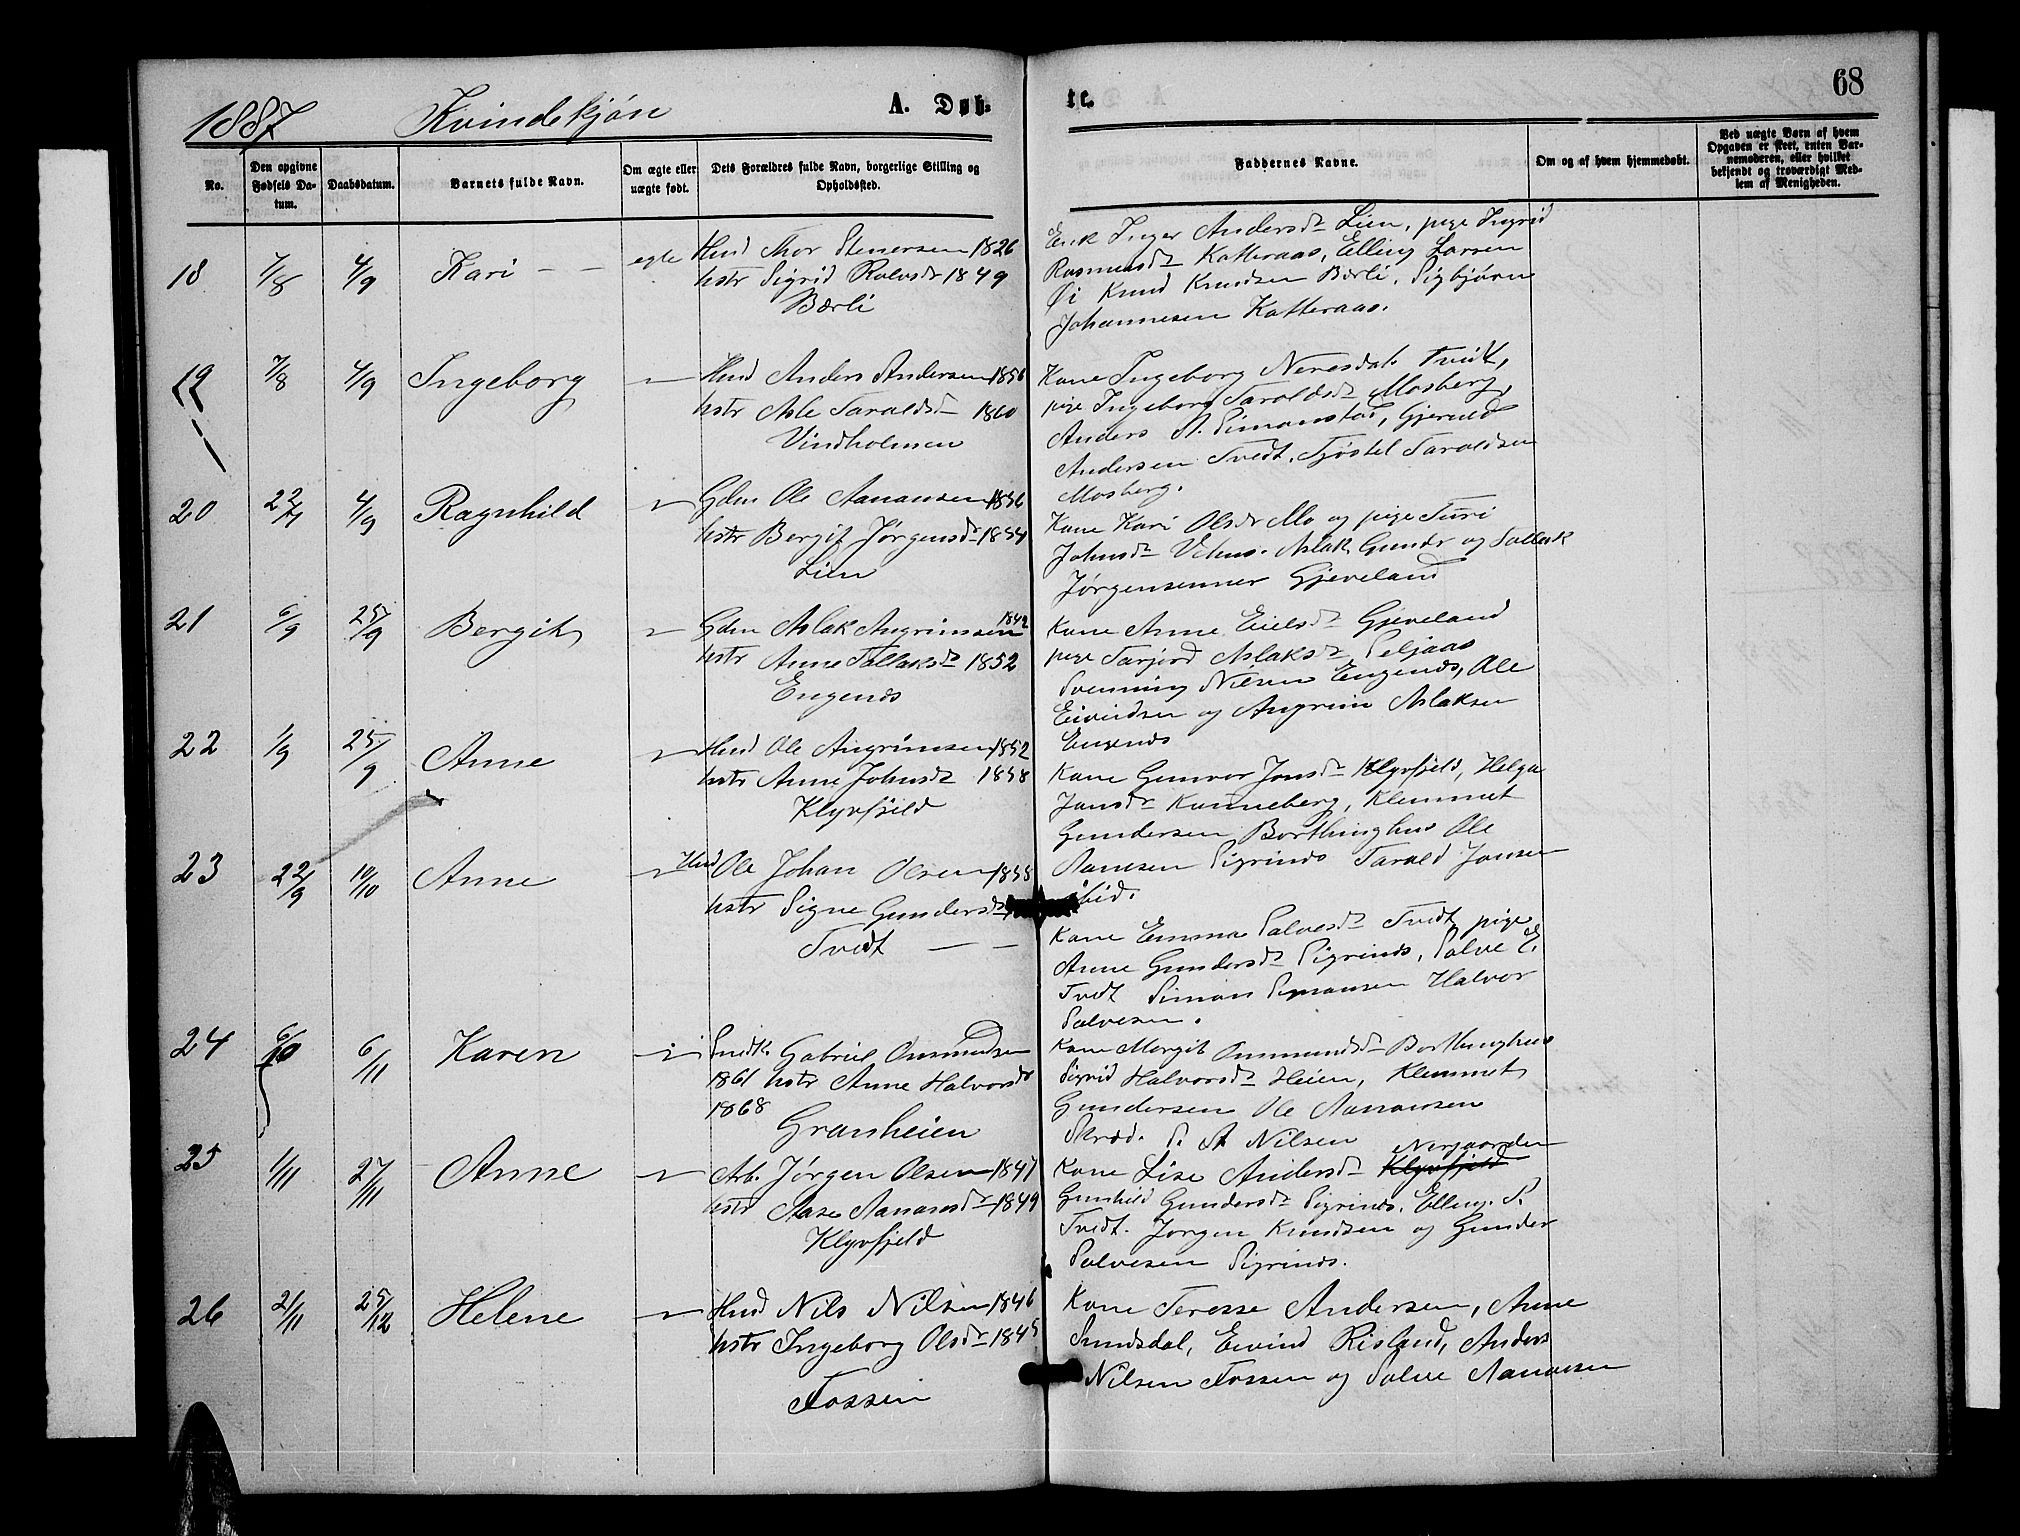 68
1887 Kvindekjøn A. Døb- te.
No.
Den opgivne Fødsels Da-tum.
Daabsdatum.
Barnets fulde Navn.
Om ægte eller uægte født.
Dets Forældres fulde Navn, borgerlige Stilling og Opholdssted.
Faddernes Navne.
Om og af hvem hjemmedøbt.
Ved uægte Børn af hvem Opgaven er skeet, enten Bar-nemoderen, eller hvilket bekjendt og troværdigt Med-lem af Menigheden.
18 7/8 4/9 Kari — — egte Husd Thor Stenersen 1826
hstr Sigrid Rolvsdr 1849
Bærli
Enk Inger Andersdr Lien, pige Ingrid
Rasmusdr Katteraas, Elling Larsen
Øi Knud Knudsen Bærli, Sigbjørn
Johannesen Katteraas.
19 7/8 4/9 Ingeborg — Husd Anders Andersen 1856
hstr Asle Taraldsdr 1860
Vindholmen
Kone Ingeborg Neresdatr Tvedt,
pige Ingeborg Taraldsdr Mosberg,
Anders A. Simonstad, Gjeruld
Andersen Tvedt, Tjøstel Taraldsen
Mosberg.
20 4/9 Ragnhild — Gdm Ole Aanansen 1856
hstr Bergit Jørgensdr 1854
Lien
Kone Kari Olsdr Mo og pige Turi
Johnsdr Vehus. Aslak, Gundr og Tallak
Jørgensenner Gjeveland
21 6/9 25/9 Bergit — Gdm Aslak Angrimsen 1842
hstr Anne Tallaksdr 1852
Engenes
Kone Anne Eielsdr Gjeveland
pige Tarjerd Aslaksdr Seljaas
Svenning Nilsen Engenes, Ole
Eivindsen og Angrim Aslaksen
Engenes
22 1/9 25/9 Anne — Husd Ole Angrimsen 1852
hstr Anne Johnsdr 1858
Klyvfjeld
Kone Gunvor Jonsdr Klyvfjeld, Helga
Jonsdr Kanneberg, Klemmet
Gundersen Borthinghus Ole
Aanesen Sigrinds Tarald Jonsen
ibid.
23 22/9 10/10 Anne — Husd Ole Johan Olsen 1855
hstr Signe Gundersdr
Tvedt — —
Kone Emma Salvesdr Tvedt, pige
Anne Gundersdr Sigrinds, Salve E.
Tvedt Simon Simonsen Halvor
Salvesen.
24 6/10 6/11 Karen — Snedk. Gabriel Omsmundsen
1861 hstr Anne Halvorsdr
1868
Granheien
Kone Mergit Ommundsdr Borthinghus
Sigrid Halvorsdr Heien, Klemmet
Gundersen Ole Aanansen
Skræd. S. A Nilsen
25 1/11 27/11 Anne — Arb. Jørgen Olsen 1847
hstr Aase Aanansdr 1849
Klyvfjeld
Kone Lise Andersdr Klyvfjeld Nergaarden
Gunhild Gundersdr Sigrinds. Elling S.
Tvedt. Jørgen Knudsen og Gunder
Salvesen Sigrinds.
26 21/11 25/12 Helene — Husd Nils Nilsen 1846
hstr Ingeborg Olsdr 1845
Fossen
Kone Teresse Andersen, Anne
Sundsdal, Eivind Risland, Anders
Nilsen Fossen og Salve Aanansen